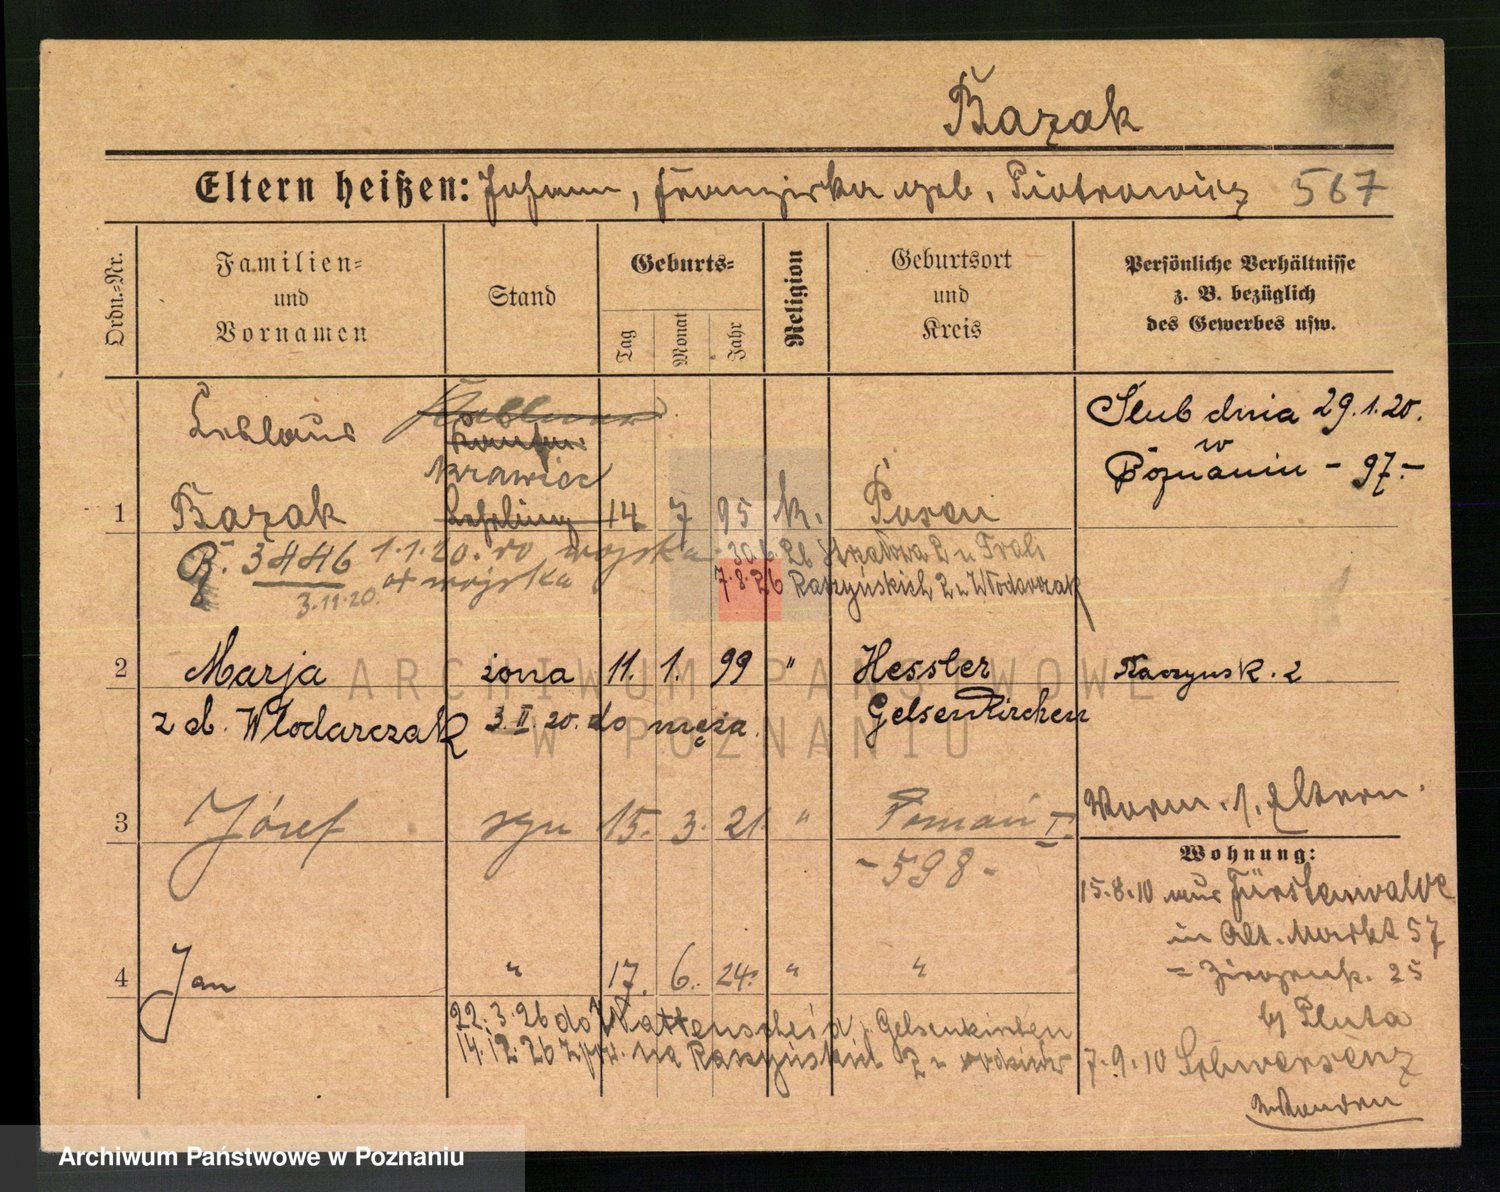 Bazak
Eltern heißen: Johann, Franziska geb. Piotrowicz 567
Ordn.-Nr.
Familien- und Vornamen
Stand
Geburts-
Tag
Monat
Jahr
Religion
Geburtsort und Kreis
Persönliche Verhältnisse z. B. bezüglich des Gewerbes usw.
Ladislaus
krawiec
Ślub dnia 29.1.20.
w
Poznaniu - 97.-
1 Bazak Lehrling 14 7 95 k. Posen
3446 1.1.20. do wojska
26 Strzałowa 2 u
3.11.20. wojska
7.8.26 Raszyńskich 2 u Włodarczak
2 Marja żona 11. 1. 99 " Hessler
Raczynsk. 2
z d. Włodarczak 3.II.20. do męża.
Gelsenkirchen
3 Józef syn 15. 3. 21. " Poznań I.
- 598 -
b. Eltern.
Wohnung:
15.8.10 aus Fürstenwalde
in Alt. Markt 57
25
by Pluta
7.9.10 Schwersenz
4 Jan " 17. 6. 24. " "
22.3.26 do Wattenscheid Gelsenkirchen
14.12.26 z pow. na Raszyńskich 2 u
ARCHIWUM PAŃSTWOWE
W POZNANIU
Archiwum Państwowe w Poznaniu